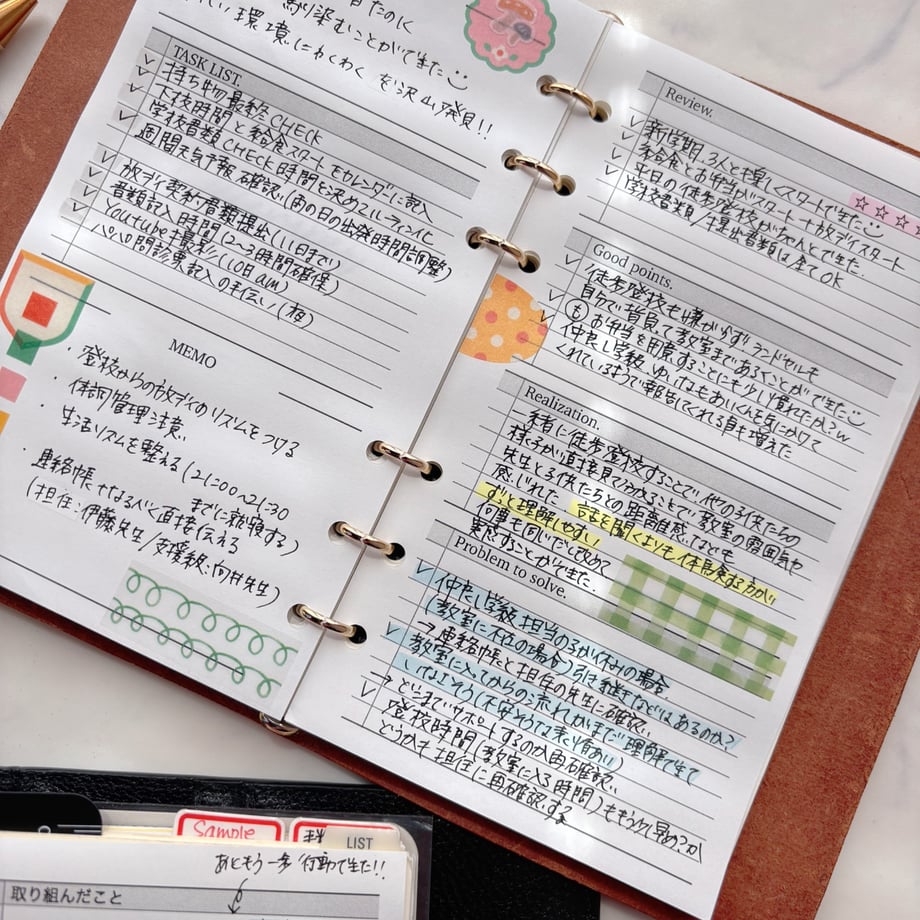 馴染むことができた
環境にわくわくを沢山発見!!
TASK LIST.
持ち物最終CHECK
下校時間と給食スタートをカレンダーに記入
学校書類CHECK時間を決めてルーティン化
週間天気予報確認(雨の日の出発時間調整)
放デイ契約書類提出(11日まで)
書類記入時間(2〜3時間確保)
Youtube撮影(10日am)
パパの問診票記入の手伝い(夜)
MEMO
・登校からの放デイのリズムをつける
・体調管理注意
生活リズムを整える(21:00〜21:30
までに就寝する)
・連絡帳+なるべく直接伝える
(担任:伊藤先生/支援級:向井先生)
Review.
新学期、3人とも楽しくスタートできた
給食とお弁当がスタート+放デイスタート
平日の徒歩登校がちゃんとできた
学校書類/提出書類は全てOK
Good points.
徒歩登校も嫌がらずランドセルも
自分で背負って教室まであるくことができた
お弁当を用意することにも少し慣れたか?w
仲良し学級、ゆいなもあいくんを気にかけて
くれているようで報告してくれる事も増えた
Realization.
一緒に徒歩登校することで、他の子供たちの
様子が直接見てわかることで、教室の雰囲気や
先生と子供たちとの距離感、なども
感じれた 話を聞くよりも体験する方が
ずっと理解しやすい
何事も同じだと改めて
実感することができた.
Problem to solve.
仲良し学級、担当の子がお休みの場合
(教室に不在の場合)引き継ぎなどはあるのか?
→連絡帳と担任の先生に確認
教室に入ってからの流れがまだ理解できて
いなさそう(不安そうな表情あり)
→どこまでサポートするのか再確認
登校時間(教室に入る時間)ももう少し早め?か
どうかを担任に再確認する
Sample
LIST
あともう一歩行動できた!!
取り組んだこと